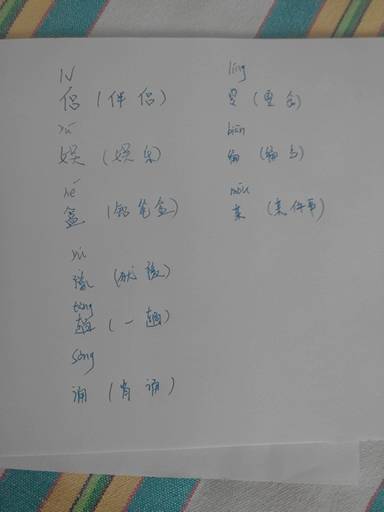 lǚ
侣 (伴侣)
yú
娱 (娱乐)
hé
盒 (铅笔盒)
yù
豫 (犹豫)
tàng
趟 (一趟)
sòng
诵 (背诵)
líng
biān
编
mǒu
某 (某件事)